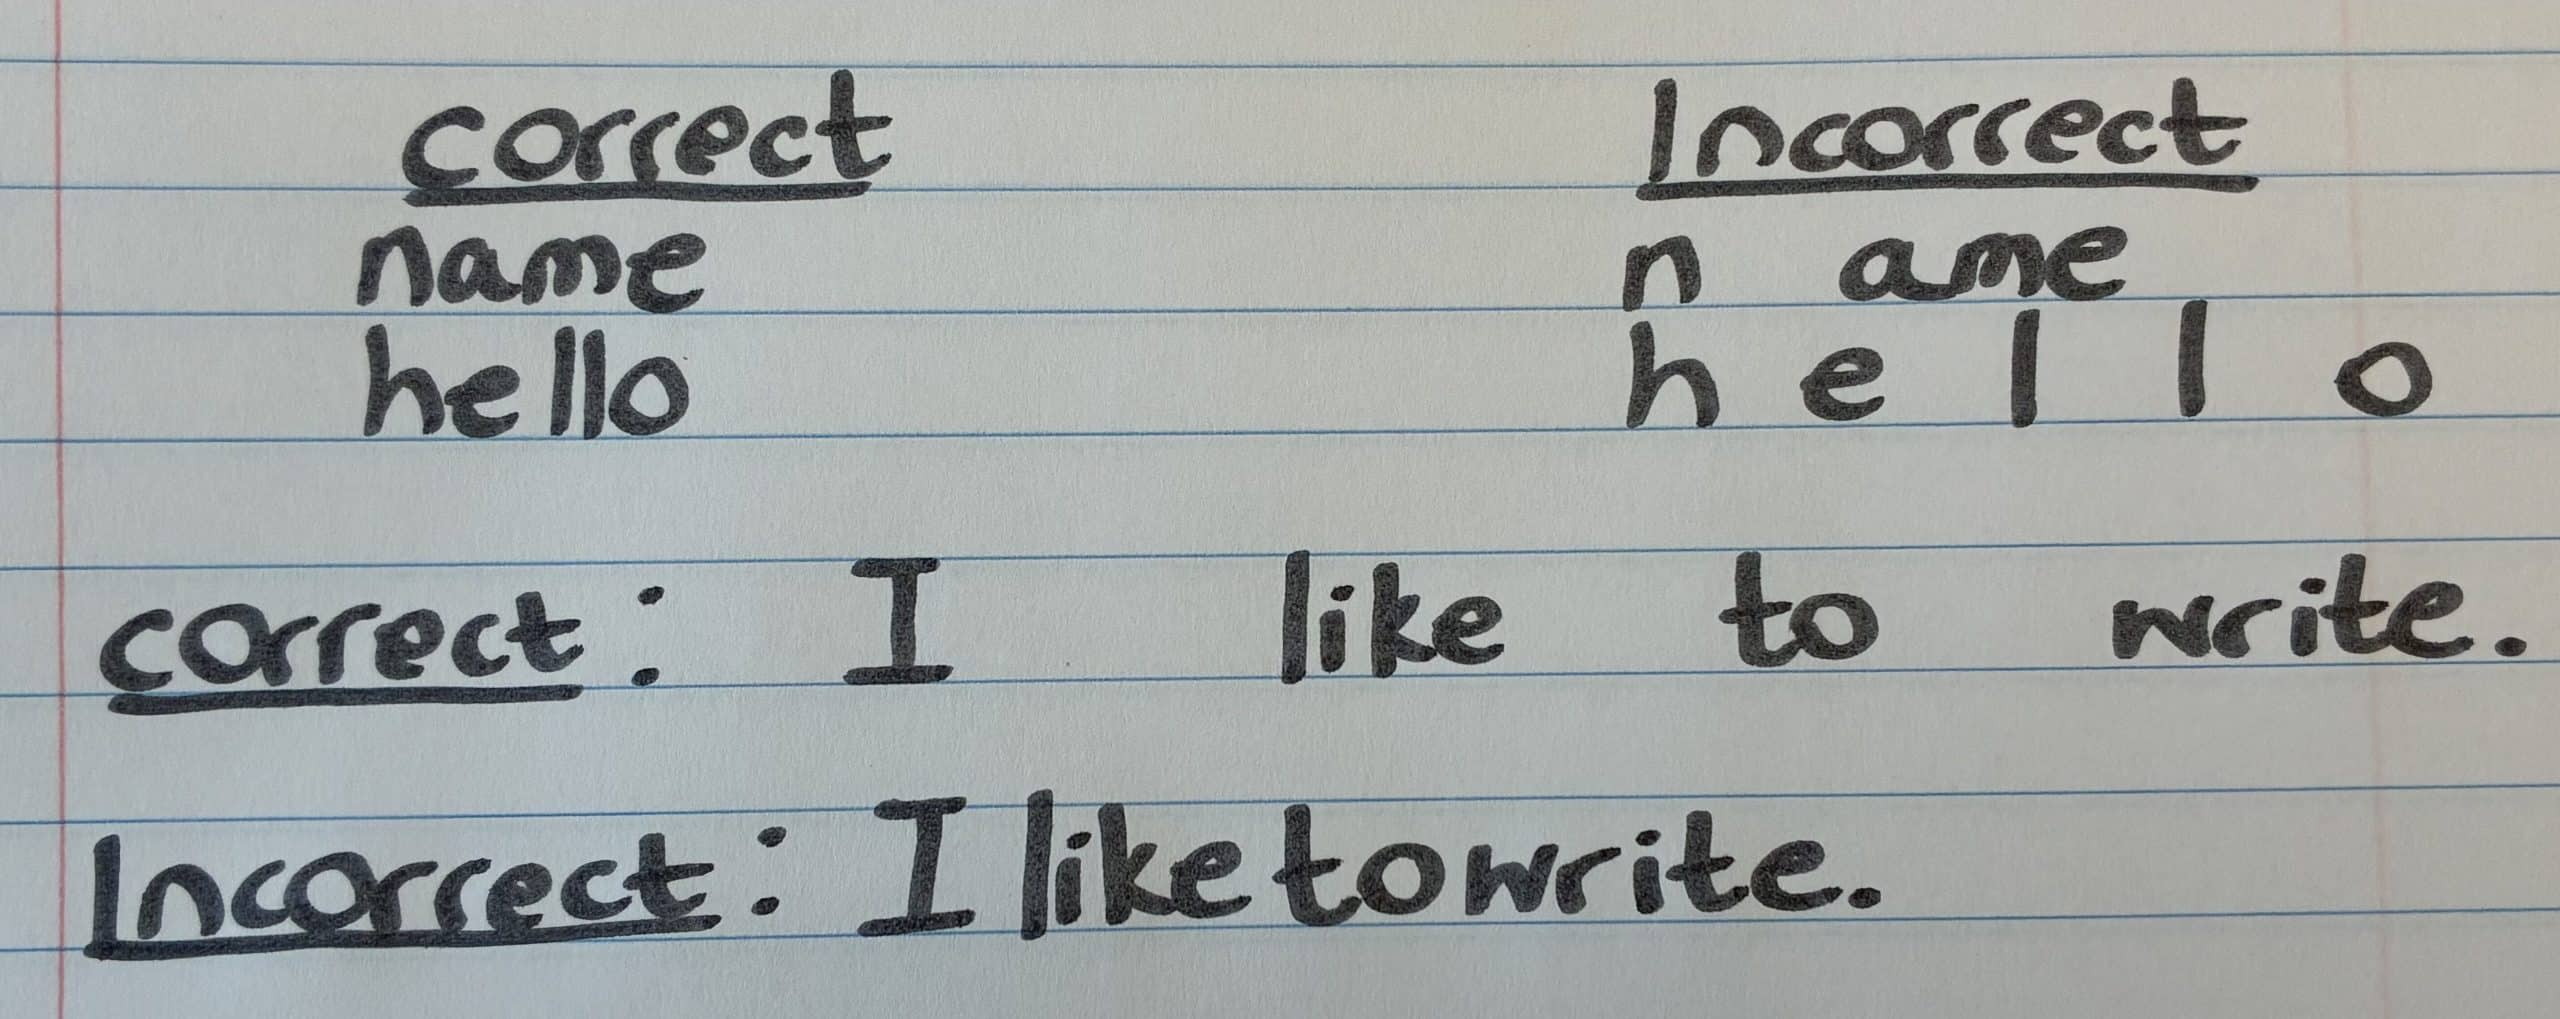 correct Incorrect
name n ame
hello h e l l o
correct: I like to write.
Incorrect: Iliketowrite.